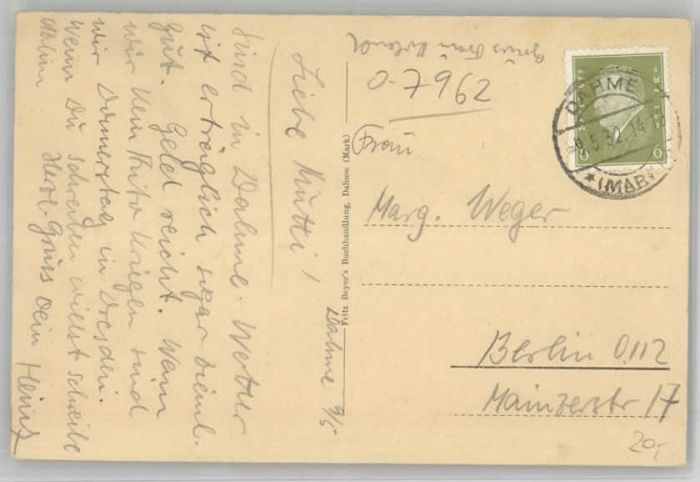 Dahme 9/5
Liebe Mutti!
Sind in Dahme. Wetter
ist erträglich sogar zieml.
gut. Geld reicht. Wenn
wir kein kriegen sind
wir Donnerstag in Dresden.
Wenn Du schreiben willst schreibe
dahin Herzl. Gruss Dein Heinz
Gruss Frau
0-7962
DAHME
9.5.32. 14
* (MARK)
6 6
Frau
Marg. Weger
Berlin O.112
Mainzerstr 17
20,-
Fritz Beyer's Buchhandlung, Dahme (Mark)